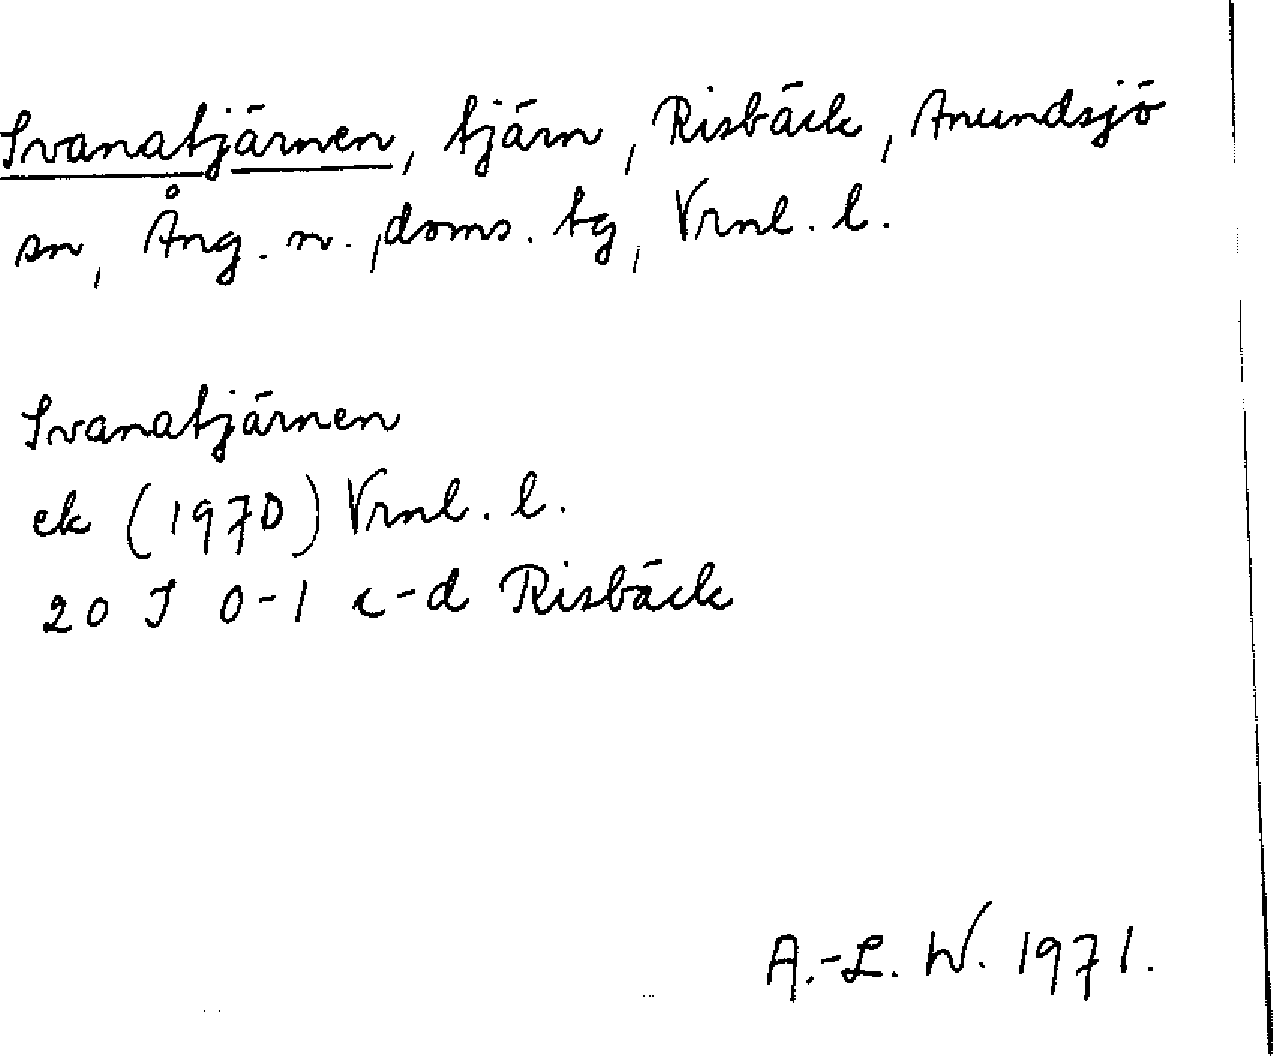 Svanatjärnen, tjärn, Risbäck, Anundsjö
sn, Ång. n., doms. tg, Vrnl. l.
Svanatjärnen
ek (1970) Vrnl. l.
20 J 0-1 c-d Risbäck
A.-L. W. 1971.